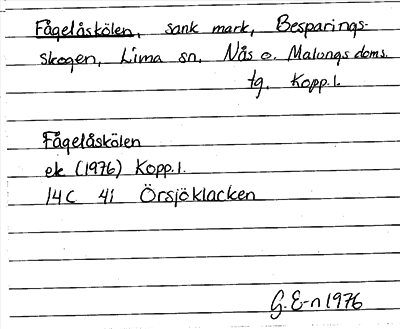 Fågelåskölen, sank mark, Besparings-
skogen, Lima sn, Nås o. Malungs doms.
tg. Kopp.l.
Fågelåskölen
ek (1976) Kopp.l.
14C 4i Örsjöklacken
G. E-n 1976